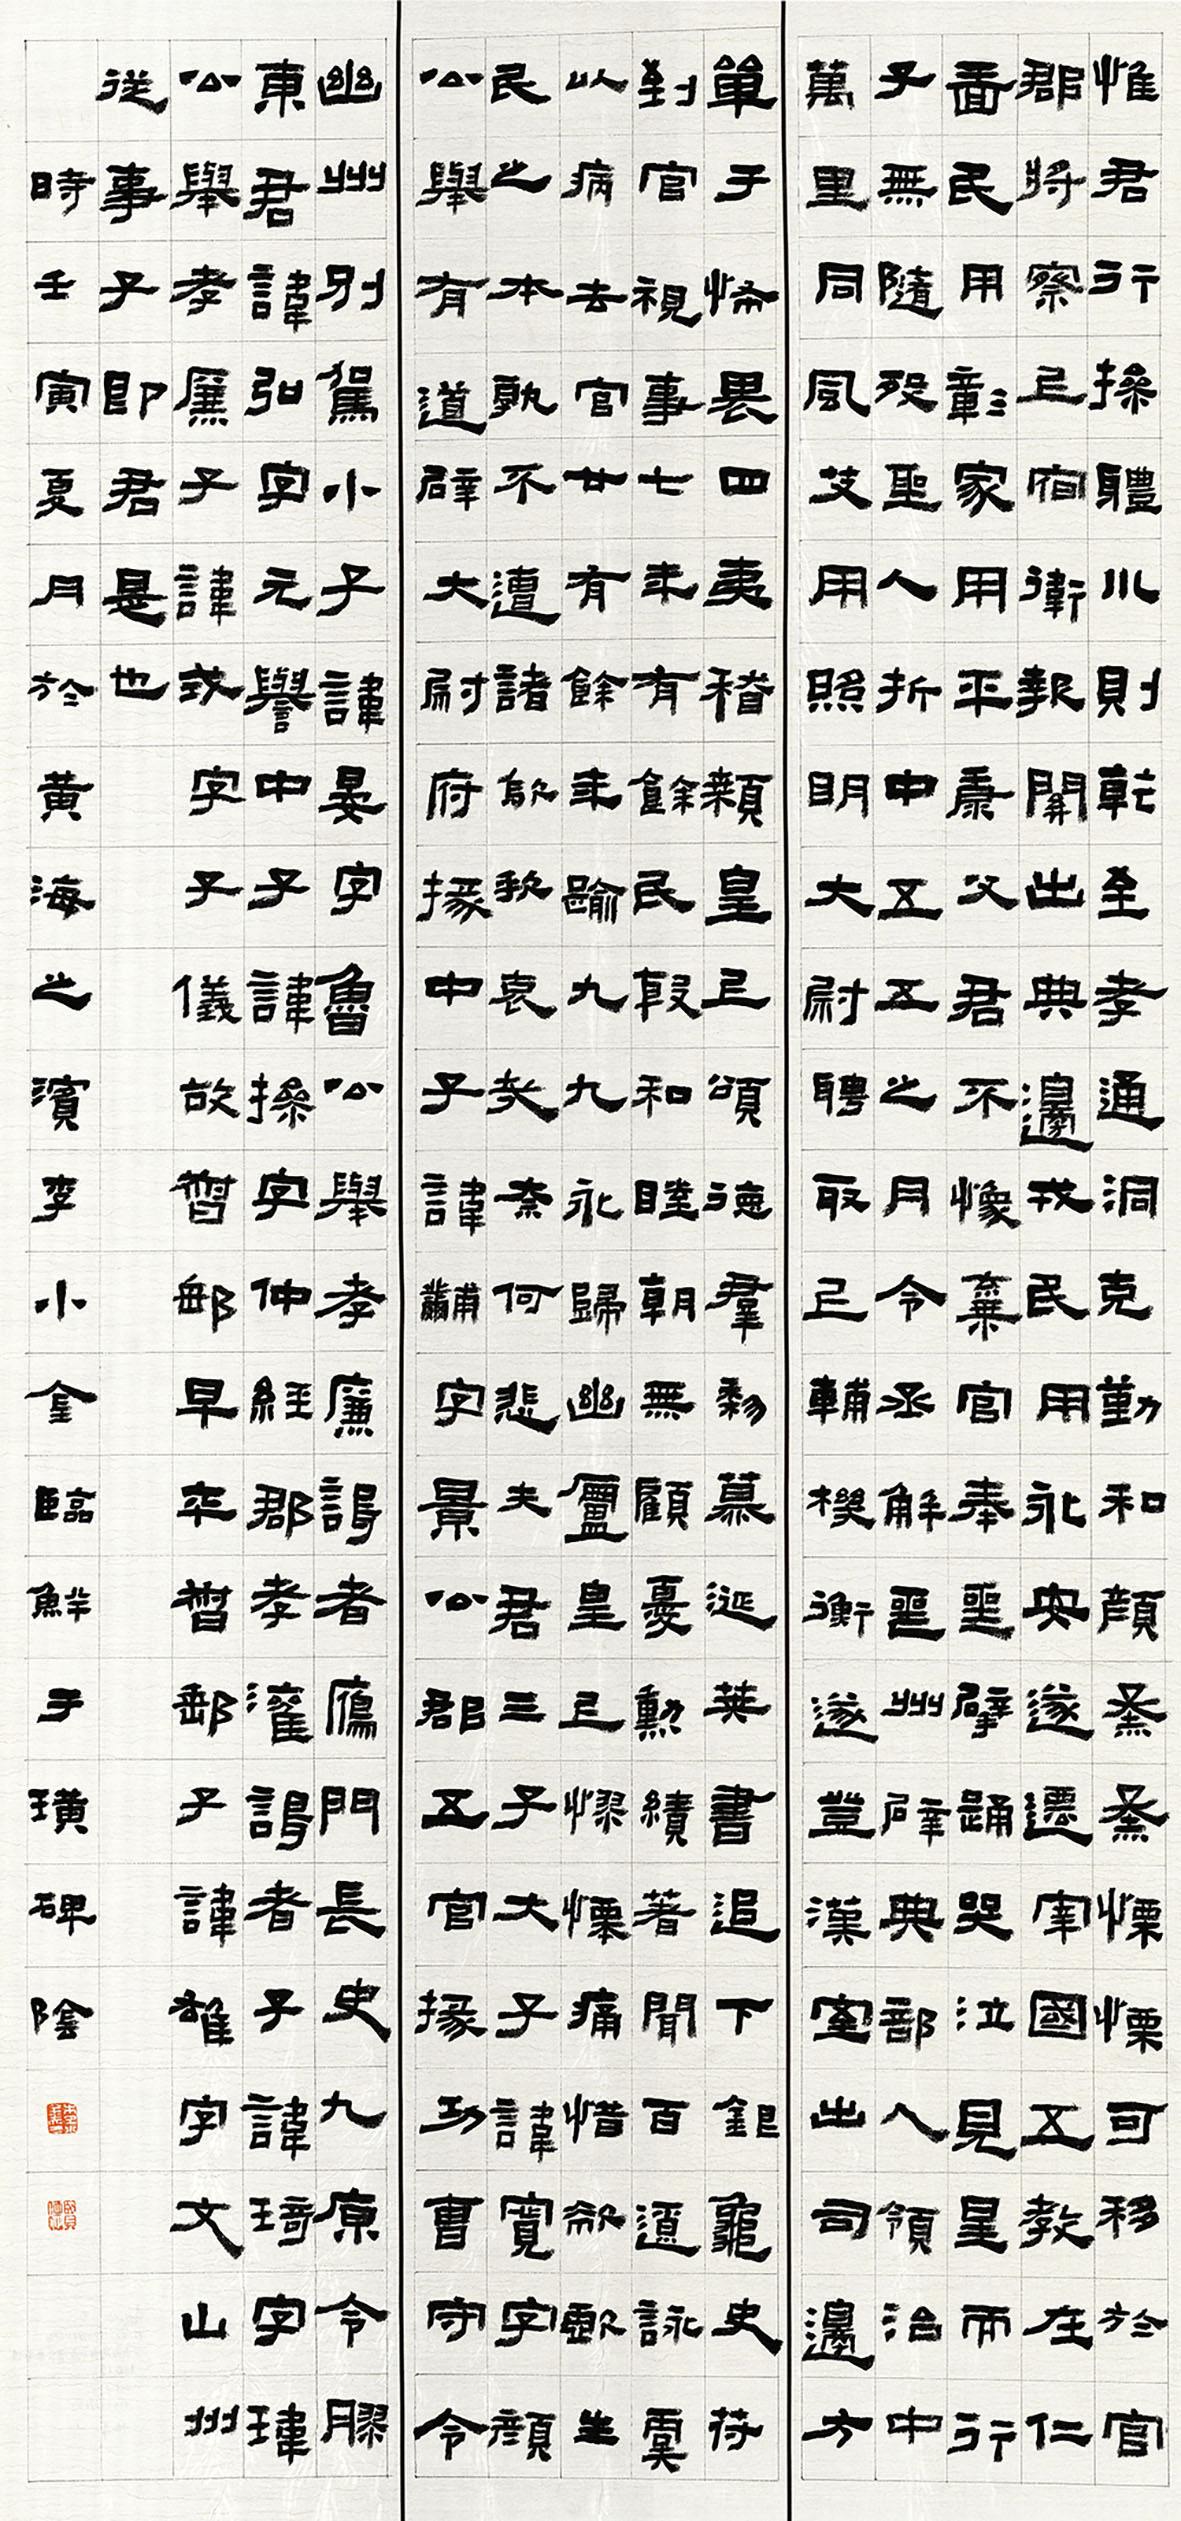 惟君行操體川則乾至孝通洞克勤和顏烝烝慄慄可移於官
郡將察以宿衛報開出典邊戎民用永安遂遷宰國五教在仁
嗇民用彰家用平康父君不像棄官奉喪擗踊哭泣見星而行
子無隨歿聖人折中五五之月令丞解喪州辟典部入領治中
萬里同風艾用照明大尉聘取上輔機衡遂登漢室出司邊方
單于怖畏四夷稽顙皇上頌德羣黎慕涎英書追下銀龜史符
到官視事七年有餘民殷和睦朝無顧憂勳績著聞百遼詠虞
以病去官廿有餘年踰九九永歸幽廬皇上憀慄痛惜欷歔生
民之本孰不遭諸哀哉奈何悲夫君三子大子諱寬字顏
公舉有道辟大尉府掾中子諱黼字景公郡五官掾功曹守令
幽州別駕小子諱晏字魯公舉孝廉謁者鴈門長史九原令膠
東君諱弘字元譽中子諱操字仲經郡孝灌謁者子諱琦字瑋
公舉孝廉子諱或字子儀故督郵早卒督郵子諱雄字文山州
從事子即君是也
時壬寅夏月於黃海之濱李小奎臨鮮于璜碑陰